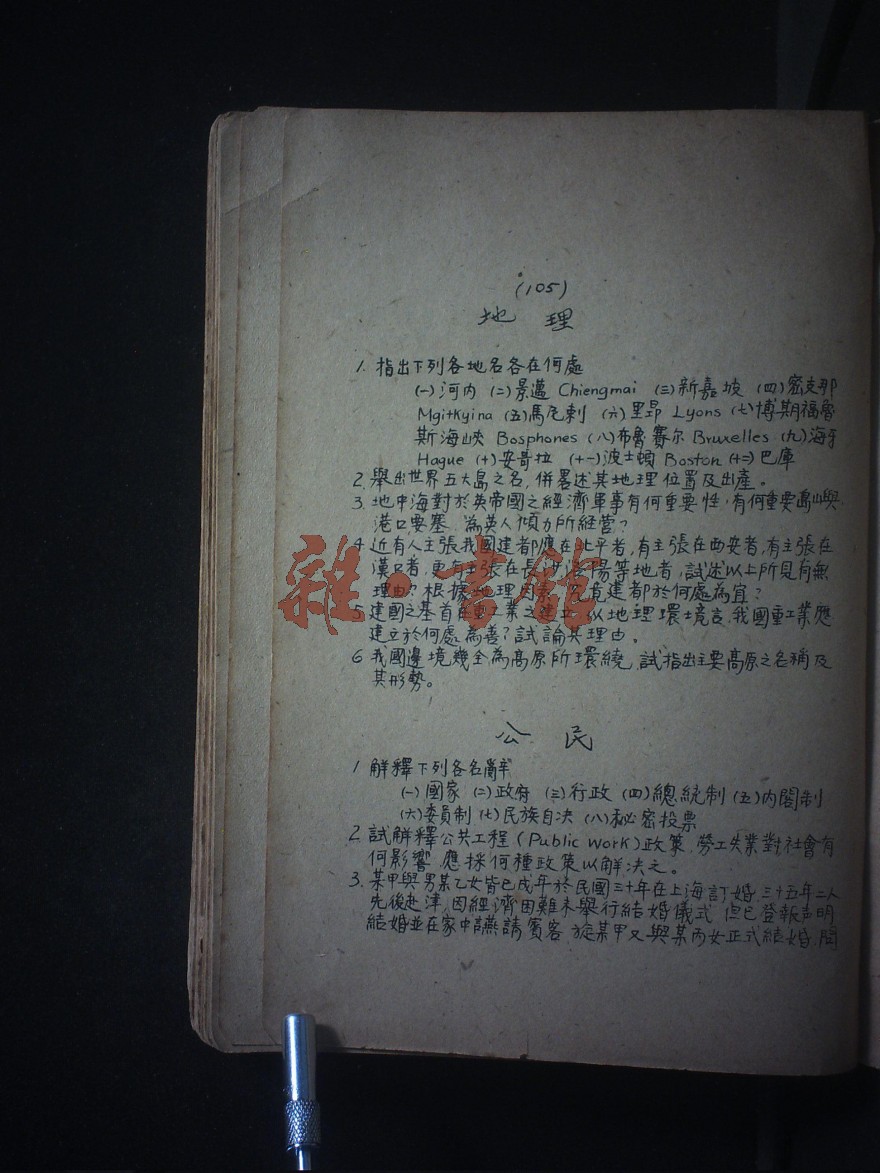 (105)
地 理
1. 指出下列各地名各在何處
(一)河内 (二)景邁 Chiengmai (三)新嘉坡 (四)密支那
Mgitkyina (五)馬尼剌 (六)里昂 Lyons (七)博斯福魯
斯海峽 Bosphones (八)布魯賽尔 Bruxelles (九)海牙
Hague (十)安哥拉 (十一)波士頓 Boston (十二)巴庫
2. 舉出世界五大島之名，併畧述其地理位置及出產。
3. 地中海對於英帝國之經濟軍事有何重要性，有何重要島嶼與
港口要塞，為英人傾力所經营？
4. 近有人主張我國建都應在北平者，有主張在西安者，有主張在
漢口者，更有主張在長沙洛陽等地者，試述以上所見有無
理由？根據地理因素，究竟建都於何處為宜？
5. 建國之基首在重工業之建立，以地理環境言，我國重工業應
建立於何處為善？試論其理由。
6. 我國邊境幾全為高原所環繞，試指出主要高原之名稱及
其形勢。
公 民
1. 解釋下列各名辭
(一)國家 (二)政府 (三)行政 (四)總統制 (五)内閣制
(六)委員制 (七)民族自决 (八)秘密投票
2. 試解釋公共工程(Public work)政策，勞工失業對社會有
何影響，應採何種政策以解决之。
3. 某甲與男某乙女皆已成年於民國三十年在上海訂婚，三十五年二人
先後赴津，因經濟困難未舉行結婚儀式，但已登報声明
結婚並在家中讌請賓客，旋某甲又與某丙女正式結婚，問
雜·書館